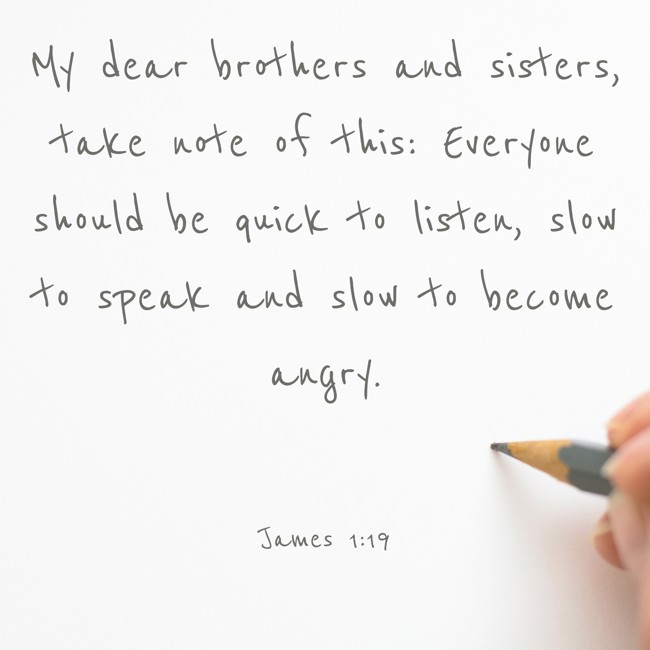 My dear brothers and sisters,
take note of this: Everyone
should be quick to listen, slow
to speak and slow to become
angry.
James 1:19